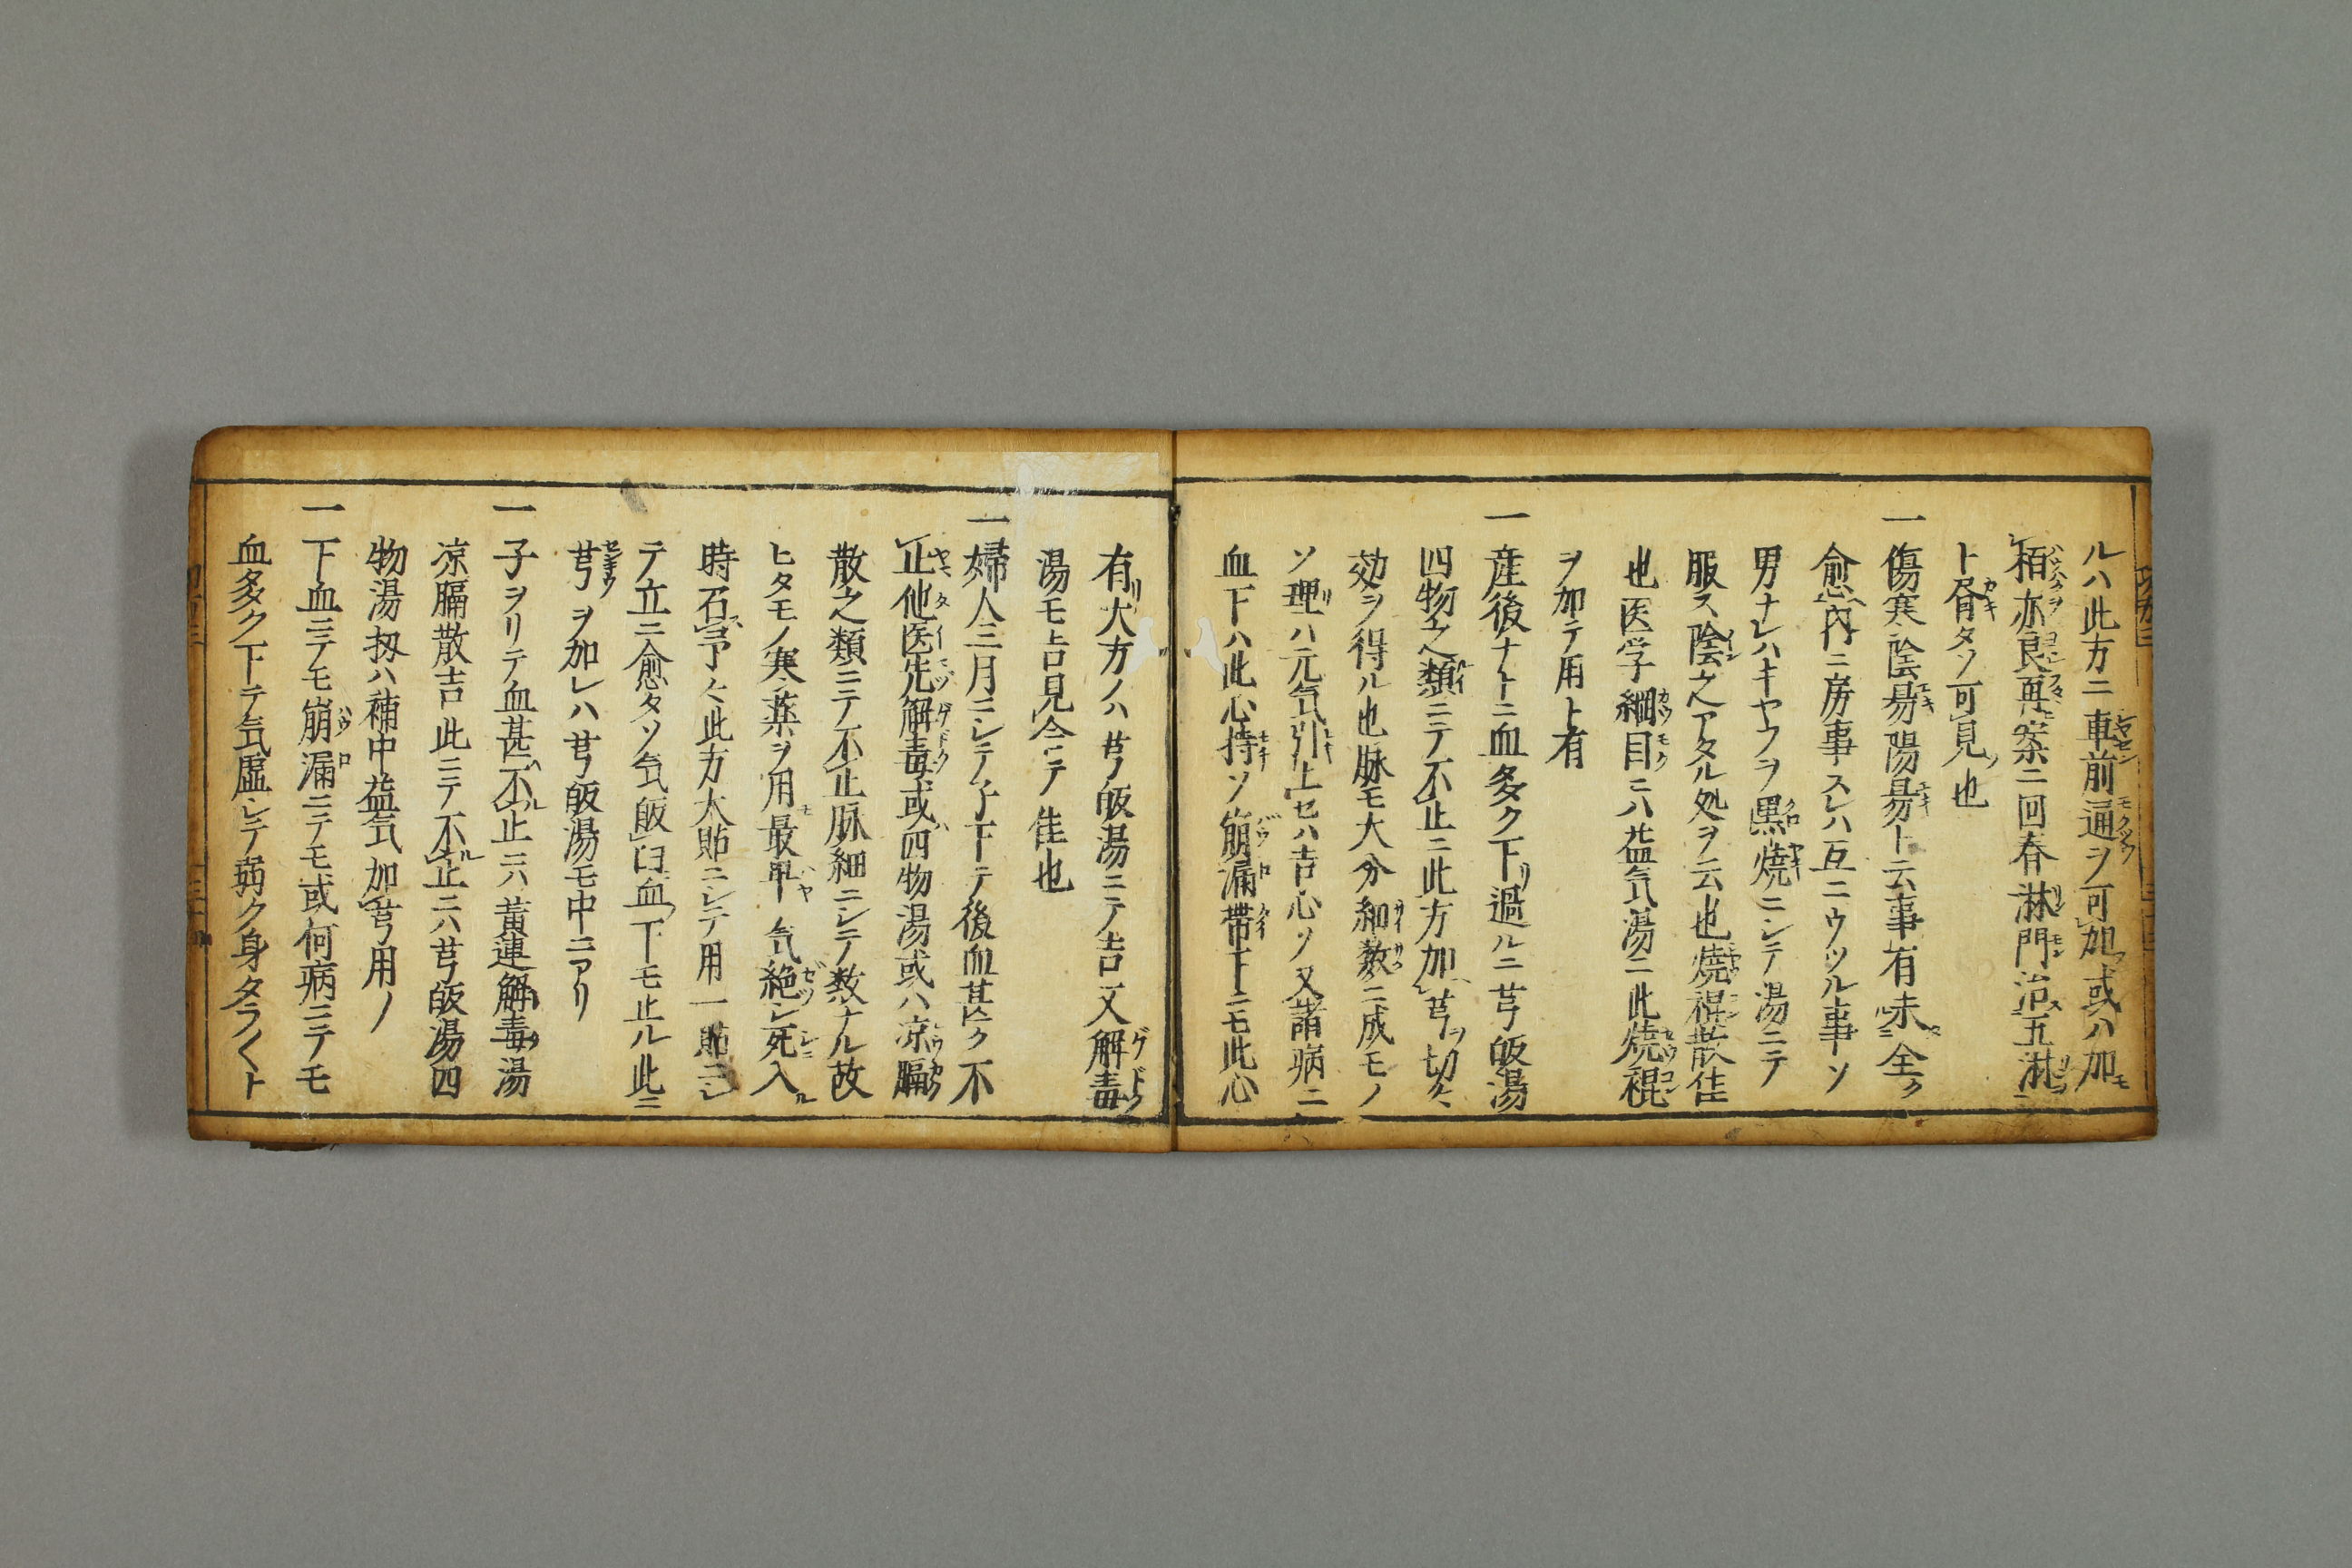 ルハ此方ニ車前通ヲ可加或ハ加
栢亦良再案ニ回春淋門治五淋
ト脊タソ可見也
一傷寒陰易陽易ト云事有未全ク
愈內ニ房事スレハ互ニウツル事ソ
男ナレハキヤウヲ黒焼ニシテ湯ニテ
服ス陰之アタル処ヲ云也焼裩散佳
也医学綱目ニハ益気湯ニ此焼裩
ヲ加テ用ト有
一産後ナトニ血多ク下過ルニ芎皈湯
四物之類ニテ不止ニ此方加芎切々
効ヲ得ル也脉モ大分細数ニ成モノ
ソ理ハ元気引上セハ吉心ソ又諸病ニ
血下ハ此心持ソ崩漏帯下ニモ此心
有大方ノハ芎皈湯ニテ吉又解毒
湯モ吉見合テ佳也
一婦人三月ニシテ子下テ後血甚ク不
止他医先解毒或四物湯或ハ凉膈
散之類ニテ不止脉細ニシテ数ナル故
ヒタモノ寒薬ヲ用最早気絶シ死入
時石予々此方大貼ニシテ用一貼ニ
テ立ニ愈タソ気皈臼血下モ止ル此ニ
芎ヲ加レハ芎皈湯モ中ニアリ
一子ヲリテ血甚不止ニハ黄連解毒湯
凉膈散吉此ニテ不止ニハ芎皈湯四
物湯扨ハ補中益気加芎用ノ
一下血ニテモ崩漏ニテモ或何病ニテモ
血多ク下テ気虚シテ弱ク身タラ〱ト